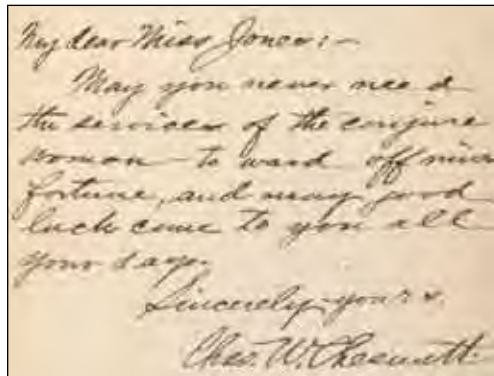 My dear Miss Jones:—
May you never need
the services of the conjure
woman to ward off mis
fortune, and may good
luck come to you all
your days.
Sincerely yours,
Chas. W. Chesnutt.